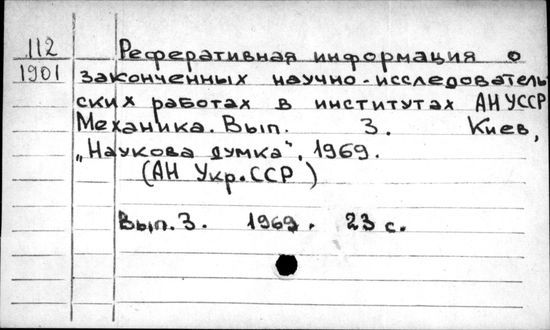 112 Реферативная информация о
1901 законченных научно-исследователь
ских работах в институтах АН УССР
Механика. Вып. 3. Киев,
„Наукова думка", 1969.
(АН Укр.ССР)
Вып. 3. 1969. 23 с.